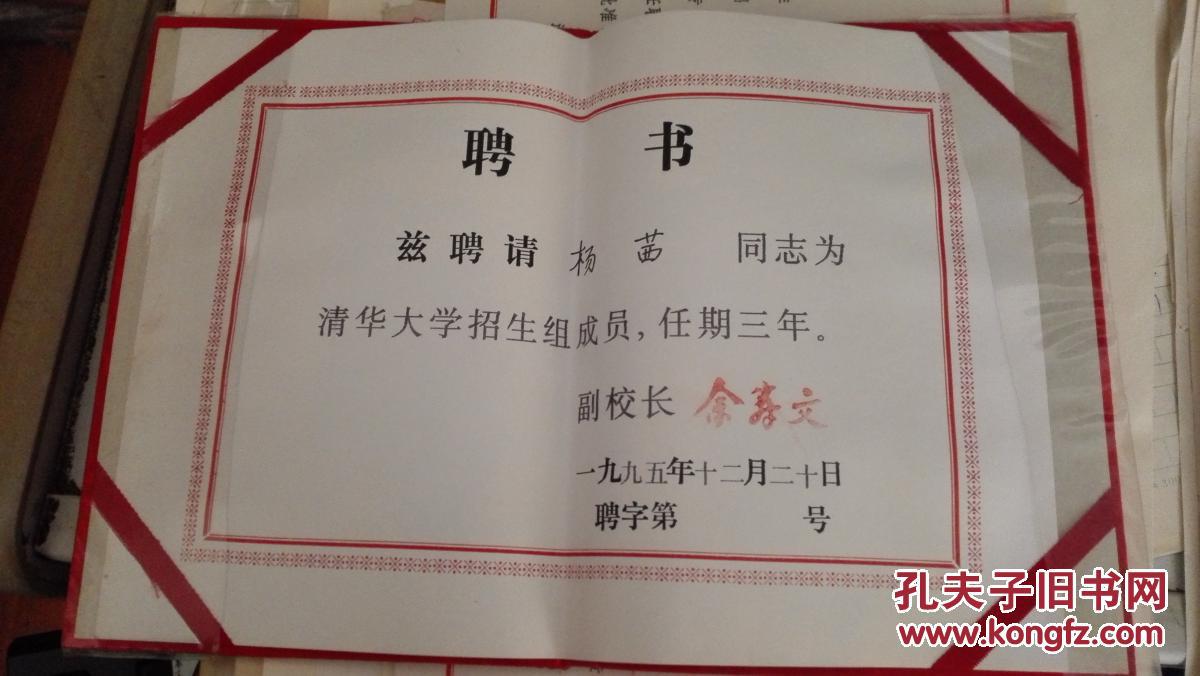 聘 书
兹聘请 杨茜 同志为
清华大学招生组成员，任期三年。
副校长 余寿文
一九九五年十二月二十日
聘字第 号
孔夫子旧书网
www.kongfz.com